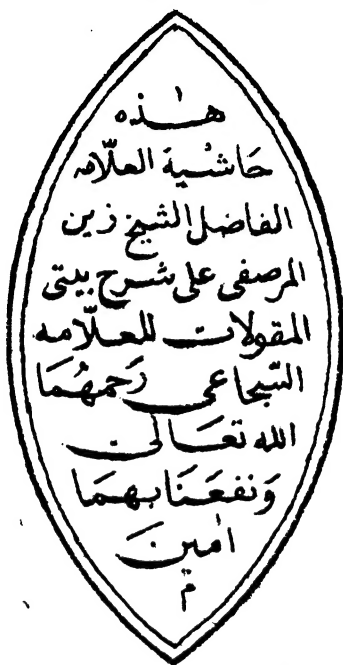 هذه
حَاشية العلّامه
الفاضل الشيخ زين
المرصفى على شرح بيتى
المقولات للعلّامه
السّجاعى رَحمهُمَا
الله تعَالى
وَنفعَنَا بهمَا
امين
م